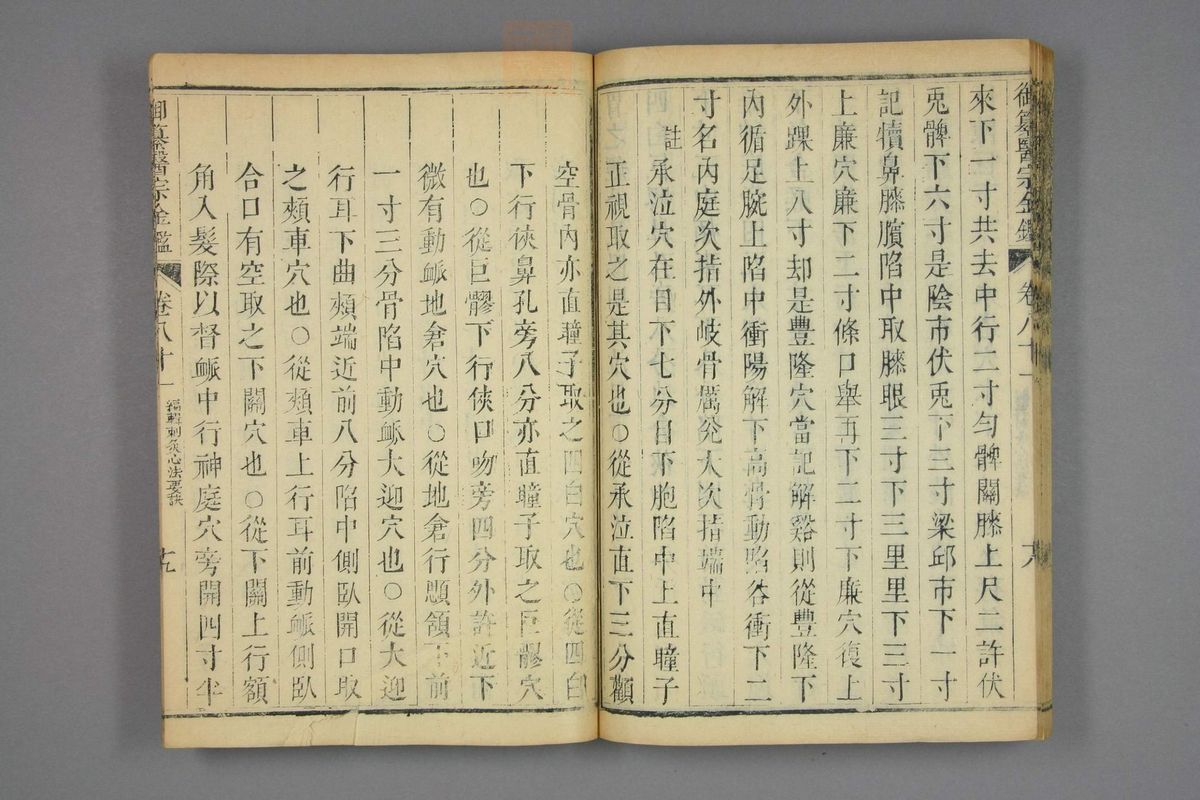 御纂醫宗金鑑 卷八十一
來下一寸共去中行二寸勻髀關膝上尺二許伏
兎髀下六寸是陰市伏兎下三寸梁邱市下一寸
記犢鼻膝臏陷中取膝眼三寸下三里里下三寸
上廉穴廉下二寸條口舉再下二寸下廉穴復上
外踝上八寸却是豐隆穴當記解谿則從豐隆下
內循足腕上陷中衝陽解下高骨動陷谷衝下二
寸名內庭次指外岐骨厲兊大次指端中
註承泣穴在目下七分目下胞陷中上直瞳子
正視取之是其穴也○從承泣直下三分顴
空骨內亦直瞳子取之四白穴也○從四白
下行俠鼻孔旁八分亦直瞳子取之巨髎穴
也○從巨髎下行俠口吻旁四分外許近下
微有動脈地倉穴也○從地倉行顋頷下前
一寸三分骨陷中動脈大迎穴也○從大迎
行耳下曲頰端近前八分陷中側臥開口取
之頰車穴也○從頰車上行耳前動脈側臥
合口有空取之下關穴也○從下關上行額
角入髮際以督脈中行神庭穴旁開四寸半
御纂醫宗金鑑 卷八十一 編輯刺灸心法要訣 九